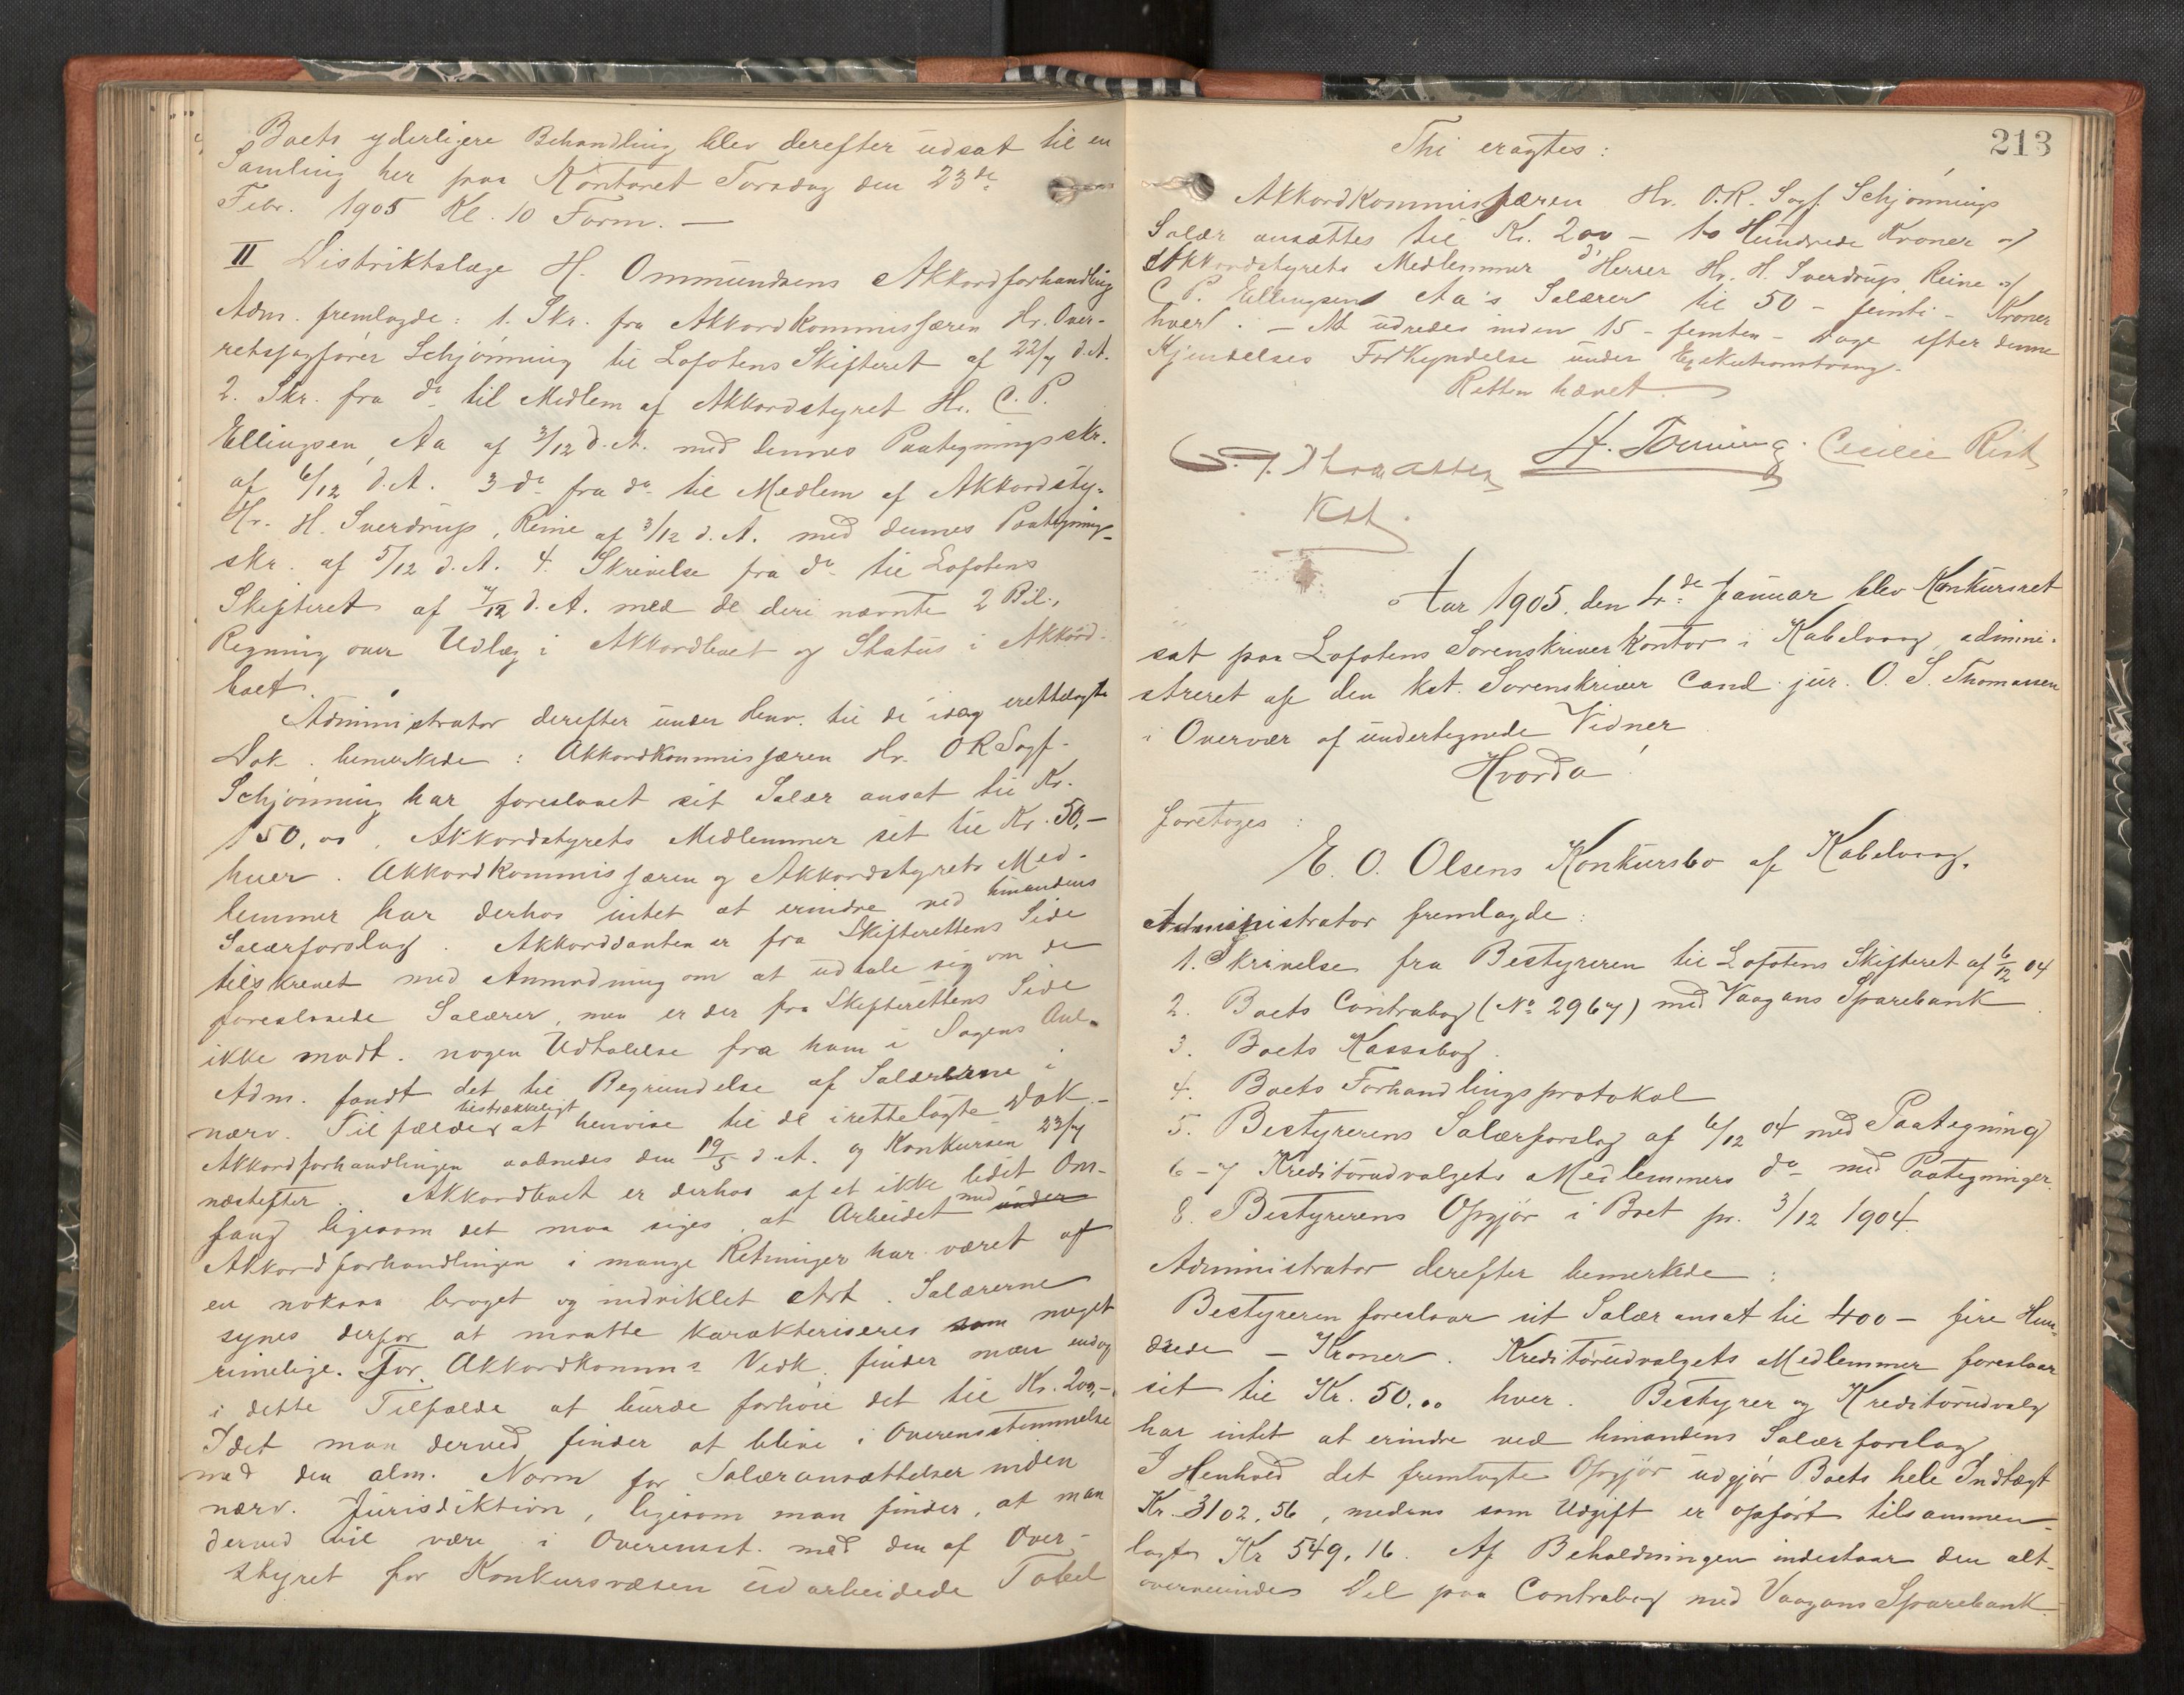 Boets yderligere Behandling blev derefter udsat til en
Samling her paa Kontoret Torsdag den 23de
Febr. 1905 Kl. 10 Form. —
II Distriktslæge H. Ommundsens Akkordforhandling
Adm. fremlagde: 1. Skr. fra Akkordkommissæren Hr. Over-
retssagfører Schjønning til Lofotens Skifteret af 22/7 d.A.
2. Skr. fra do til Medlem af Akkordstyret Hr. C. P.
Ellingsen, Aa af 3/12 d.A. med dennes Paategningsskr.
af 6/12 d.A. 3 do fra do til Medlem af Akkordsty-
Hr. H. Sverdrup, Reine af 3/12 d.A. med dennes Paategnings-
skr. af 5/12 d.A. 4. Skrivelse fra do til Lofotens
Skifteret af 7/12 d.A. med de deri nævnte 2 Bil.,
Regning over Udlæg i Akkordboet og Status i Akkord-
boet.
Administrator derefter under Henv. til de idag irettelagte
Dok. bemerkede: Akkordkommissæren Hr. O R Sagf.
Schjønning har foreslaaet sit Salær ansat til Kr.
150,00, Akkordstyrets Medlemmer sit til Kr. 50,—
hver. Akkordkommissæren og Akkordstyrets Med-
lemmer har derhos intet at erindre ved hinandens
Salærforslag. Akkordanten er fra Skifterettens Side
tilskrevet med Anmodning om at udtale sig om de
foreslaaede Salærer, men er der fra Skifterettens Side
ikke modt. nogen Udtalelse fra ham i Sagens Anl.
Adm. fandt det til Begrundelse af Salærerne i
nærv. Tilfælde tilstrækkeligt at henvise til de irettelagte Dok.—
Akkordforhandlingen aabnedes den 19/5 d.A. og Konkursen 22/7
næstefter. Akkordboet er derhos af et ikke lidet Om-
fang ligesom det maa siges, at Arbeidet med under
Akkordforhandlingen i mange Retninger har været af
en noksaa broget og indviklet Art. Salærerne
synes derfor at maatte karakteriseres som meget
rimelige. For Akkordkomms Vedk. finder man endog
i dette Tilfælde at burde forhøie det til Kr. 200,—.
Idet man derved finder at blive i Overensstemmelse
med den alm. Norm for Salæransættelser inden
nærv. Jurisdiktion, ligesom man finder, at man
derved vil være i Overensst. med den af Over-
styret for Konkursvæsen udarbeidede Tabel
213
Thi eragtes:
Akkordkommissæren Hr. O.R. Sagf. Schjønnings
Salær ansættes til Kr. 200 — to Hundrede Kroner og
Akkordstyrets Medlemmer d'Herrer Hr. H. Sverdrup Reine og
C. P. Ellingsens Aa's Salærer til 50 — femti — Kroner
hver. — At udredes inden 15 — femten — Dage efter denne
Kjendelses Forkyndelse under Exekutionstvang.
Retten hævet.
O. S. Thomassen H. Tønning. Cecilie Rist
Kst.
Aar 1905, den 4de Januar blev Konkursret
sat paa Lofotens Sorenskriverkontor i Kabelvaag, admini-
streret af den kst. Sorenskriver Cand. jur. O. S. Thomassen
i Overvær af undertegnede Vidner
Hvorda
foretoges:
E. O. Olsens Konkursbo af Kabelvaag.
Administrator fremlagde:
1. Skrivelse fra Bestyreren til Lofotens Skifteret af 6/12 04
2. Boets Contrabog (No 2967) med Vaagans Sparebank
3. Boets Kassabog.
4. Boets Forhandlingsprotokol
5. Bestyrerens Salærforslag af 6/12 04 med Paategning
6-7 Kreditorudvalgets Medlemmers do med Paategninger.
8. Bestyrerens Opgjør i Boet pr. 3/12 1904
Administrator derefter bemerkede:
Bestyreren foreslaar sit Salær ansat til 400 — fire Hun-
drede — Kroner. Kreditorudvalgets Medlemmer foreslaar
sit til Kr. 50.00 hver. Bestyrer og Kreditorudvalg
har intet at erindre ved hinandens Salærforslag
I Henhold det fremlagte Opgjør udgjør Boets hele Indtægt
Kr. 3102,56, medens som Udgift er opført tilsammen-
lagt Kr 549,16. Af Beholdningen indestaar den alt-
overveiende Del paa Contrabog med Vaagans Sparebank.